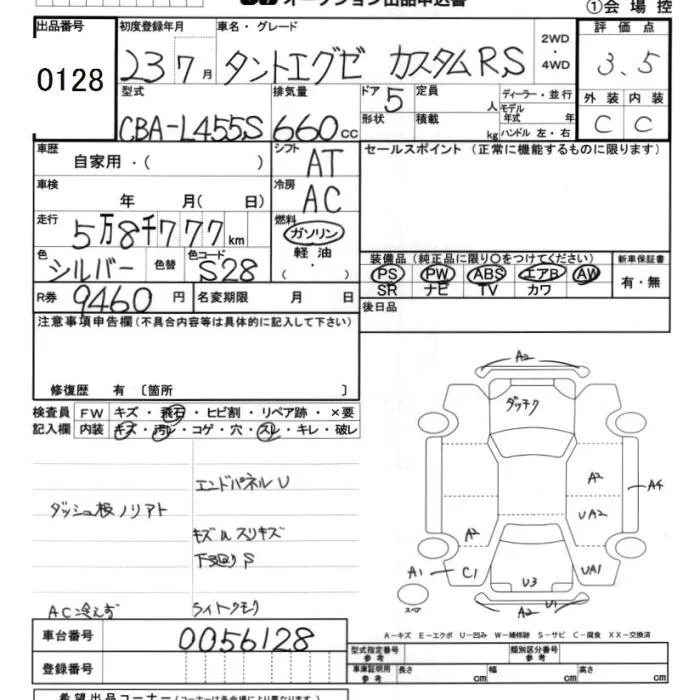 オークション出品申込書
①会場控
出品番号
0128
初度登録年月
23 7月
車名・グレード
タントエグゼ カスタムRS
2WD
・
4WD
評価点
3.5
外装 内装
C C
型式
CBA-L455S
排気量
660cc
ドア
5
形状
定員
人
積載
kg
ディーラー・並行
モデル
年式 年
ハンドル 左・右
車歴
自家用・( )
シフト
AT
セールスポイント (正常に機能するものに限ります)
車検
年 月( 日)
冷房
AC
走行
5万8千777km
燃料
ガソリン
軽油
( ・ )
色
シルバー
色替
色コード
S28
装備品 (純正品に限り○をつけてください)
PS PW ABS エアB AW
SR ナビ TV カワ
新車保証書
有・無
R券
9460円
名変期限 月 日
後日品
注意事項申告欄(不具合内容等は具体的に記入して下さい)
修復歴 有〔箇所 〕
検査員
記入欄
FW キズ・飛石・ヒビ割・リペア跡・×要
内装 キズ・汚レ・コゲ・穴・スレ・キレ・破レ
エンドパネルU
ダッシュ板ノリアト
キズルスリキズ
下廻りS
AC冷えず
ライトクモリ
A2
ダッチク
A2
A4
UA2
A2
A1
C1
UA1
U3
スペア
U1
A2
A-キズ E-エクボ U-凹み W-補修跡 S-サビ C-腐食 XX-交換済
車台番号
0056128
登録番号
型式指定番号
参考
類別区分番号
参考
車庫証明用
参考
長さ cm
幅 cm
高さ cm
希望出品コーナー(コーナーは各会場により異なります)